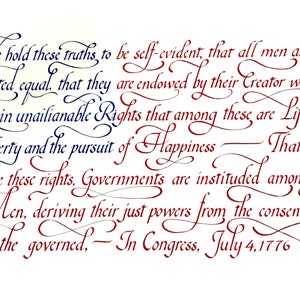 e hold these truths, to be self-evident, that all men a
ted equal, that they are endowed by their Creator w
in unailianable Rights that among these are Life
erty and the pursuit of Happiness — That
e these rights, Governments are instituded amon
Men, deriving their just powers from the consen
the governed, — In Congress, July 4, 1776